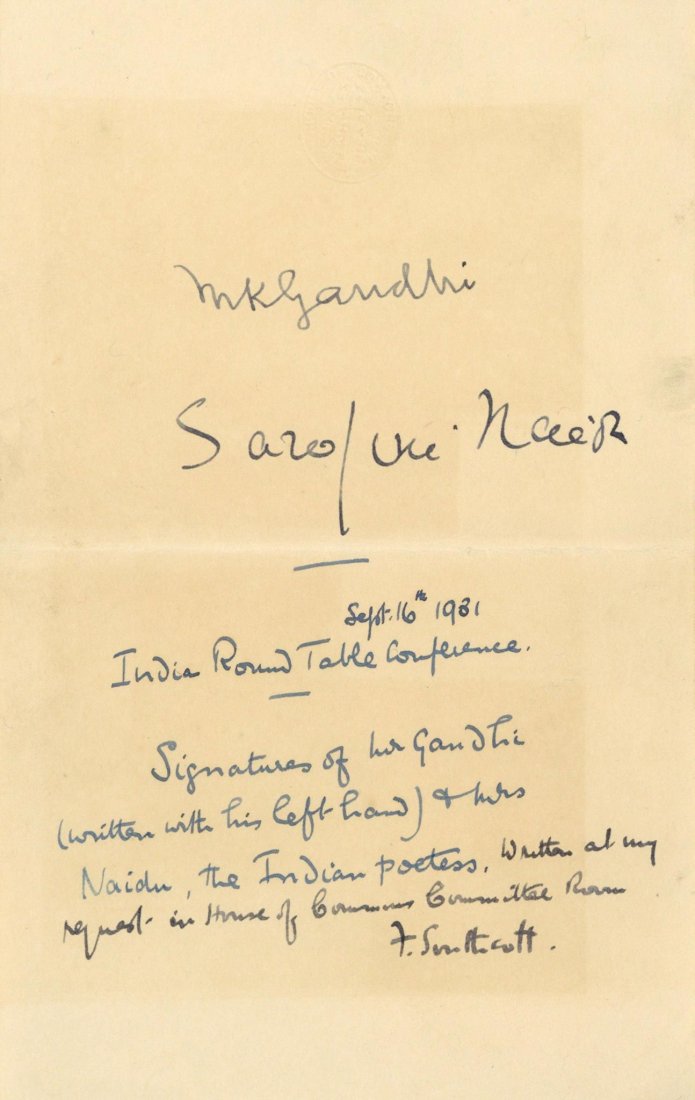 MKGandhi
Sarojini Naidu
Sept. 16th 1931
India Round Table Conference.
Signatures of Mr Gandhi
(written with his left hand) & Mrs
Naidu, the Indian poetess. Written at my
request in House of Commons Committee Room
F. Southcott.